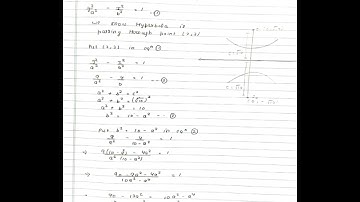 y²/a² - x²/b² = 1 - ①
we know Hyperbola is
passing through point (2,3)
Put (2,3) in eqⁿ ①
y²/a² - x²/b² = 1
9/a² - 4/b² = 1 - ②
a² + b² = c²
a² + b² = (√10)²
a² + b² = 10
b² = 10 - a² - ③
Put b² = 10 - a² in eqⁿ ②
9/a² - 4/10 - a² = 1
⇒ 9(10 - a²) - 4a² / a²(10 - a²) = 1
⇒ 90 - 9a² - 4a² / 10a² - a⁴ = 1
⇒ 90 - 13a² = 10a² - a⁴